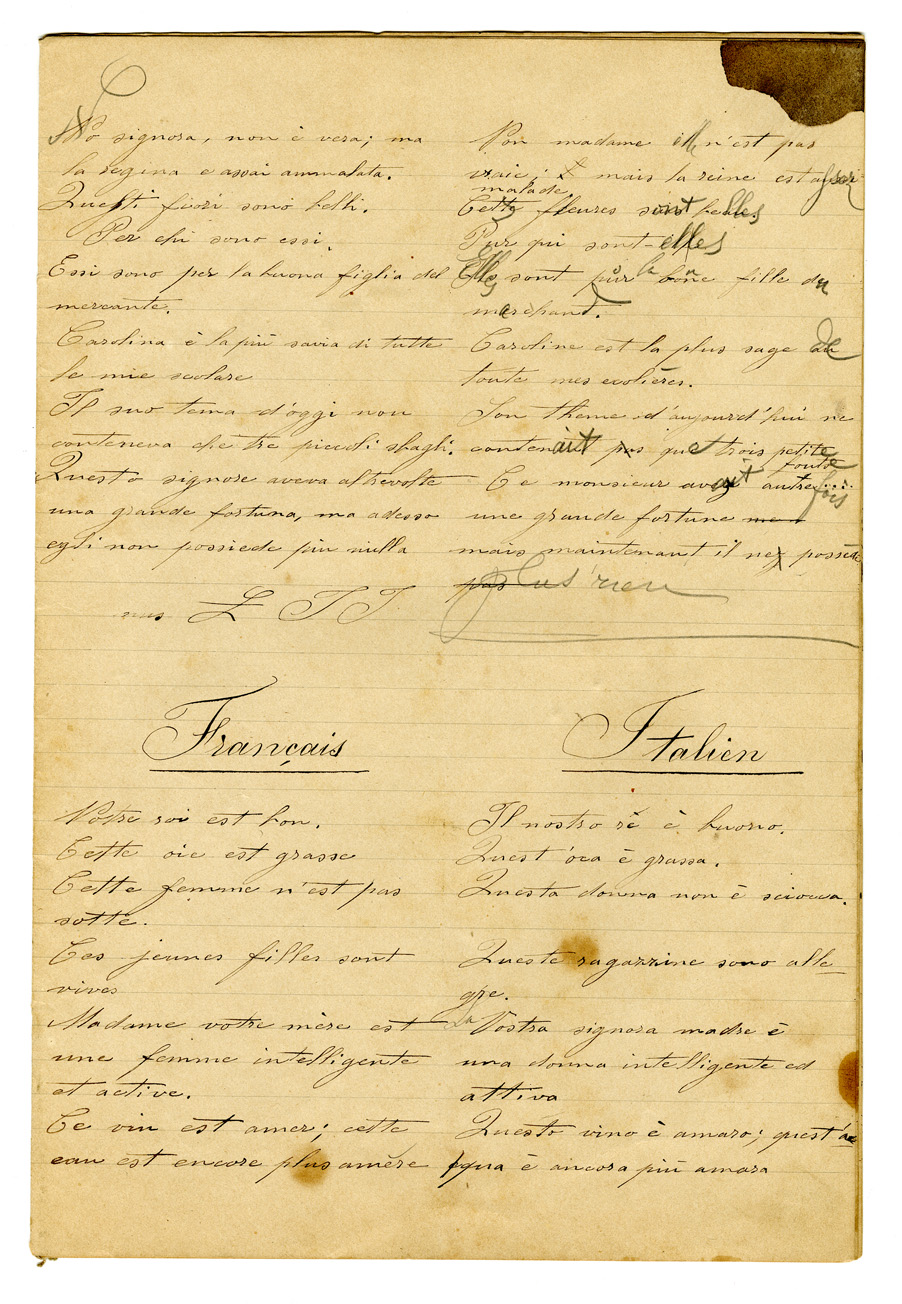 No signora, non è vera; ma
la regina e assai ammalata.
Questi fiori sono belli.
Per chi sono essi.
Essi sono per la buona figlia del
mercante.
Carolina è la più savia di tutte
le mie scolare
Il suo tema d'oggi non
conteneva che tre piccoli sbagli.
Questo signore aveva altrevolte
una grande fortuna, ma adesso
egli non possiede più nulla
Non madame il n'est pas
vraie; mais la reine est
malade.
fleures sont belles
Pur qui sont-elles
Elles sont pour la bonne fille du
marchand.
Caroline est la plus sage de
toute mes ecolières.
Son theme d'aujourd'hui ne
contenait pas que trois petite
Ce monsieur avait autre... fois
une grande fortune
mais maintenant il ne possède
pas plus rien
Français
Votre roi est bon.
Cette oie est grasse
Cette femme n'est pas
sotte.
Ces jeunes filles sont
vives
Madame votre mère est
une femme intelligente
et active.
Ce vin est amer; cette
eau est encore plus amère
Italien
Il nostro rè è buono.
Quest'oca è grassa.
Questa donna non è sciocca.
Queste ragazzine sono alle
gre.
La Vostra signora madre è
una donna intelligente ed
attiva
Questo vino è amaro; quest'ac
qua è ancora più amara